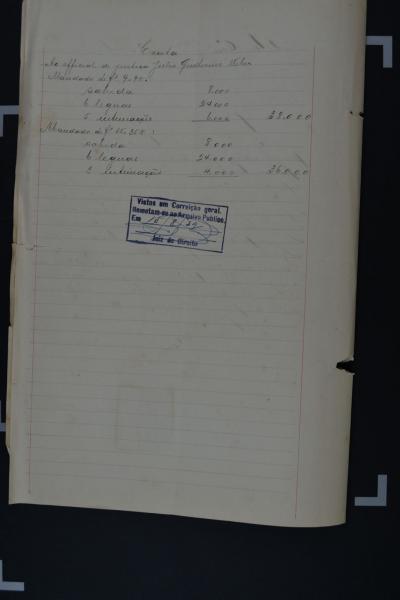 Conta
Ao official de justiça Julio Guilherme
Mandado de fs. 9-90:
sahida 8.000
6 leguas 24.000
intimação 6.000 38.000
Mandado de fs.
sahida 8.000
6 leguas 24.000
2 intimação 4.000 36.000
Vistos em Correição geral.
Remetam-se ao Arquivo Publico.
Em
Juiz de Direito